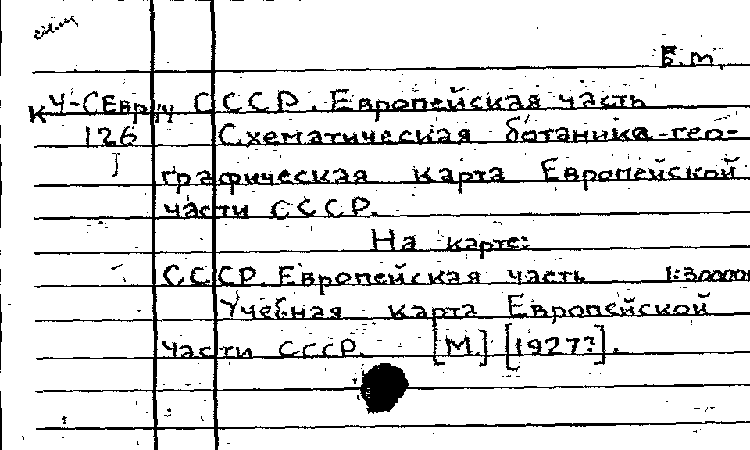 Б.м.
К У-СЕвр/4 СССР. Европейская часть
126 Схематическая ботанико-гео-
I графическая карта Европейской
части СССР.
На карте:
СССР. Европейская часть 1:3000000
Учебная карта Европейской
части СССР. [М.] [1927?].